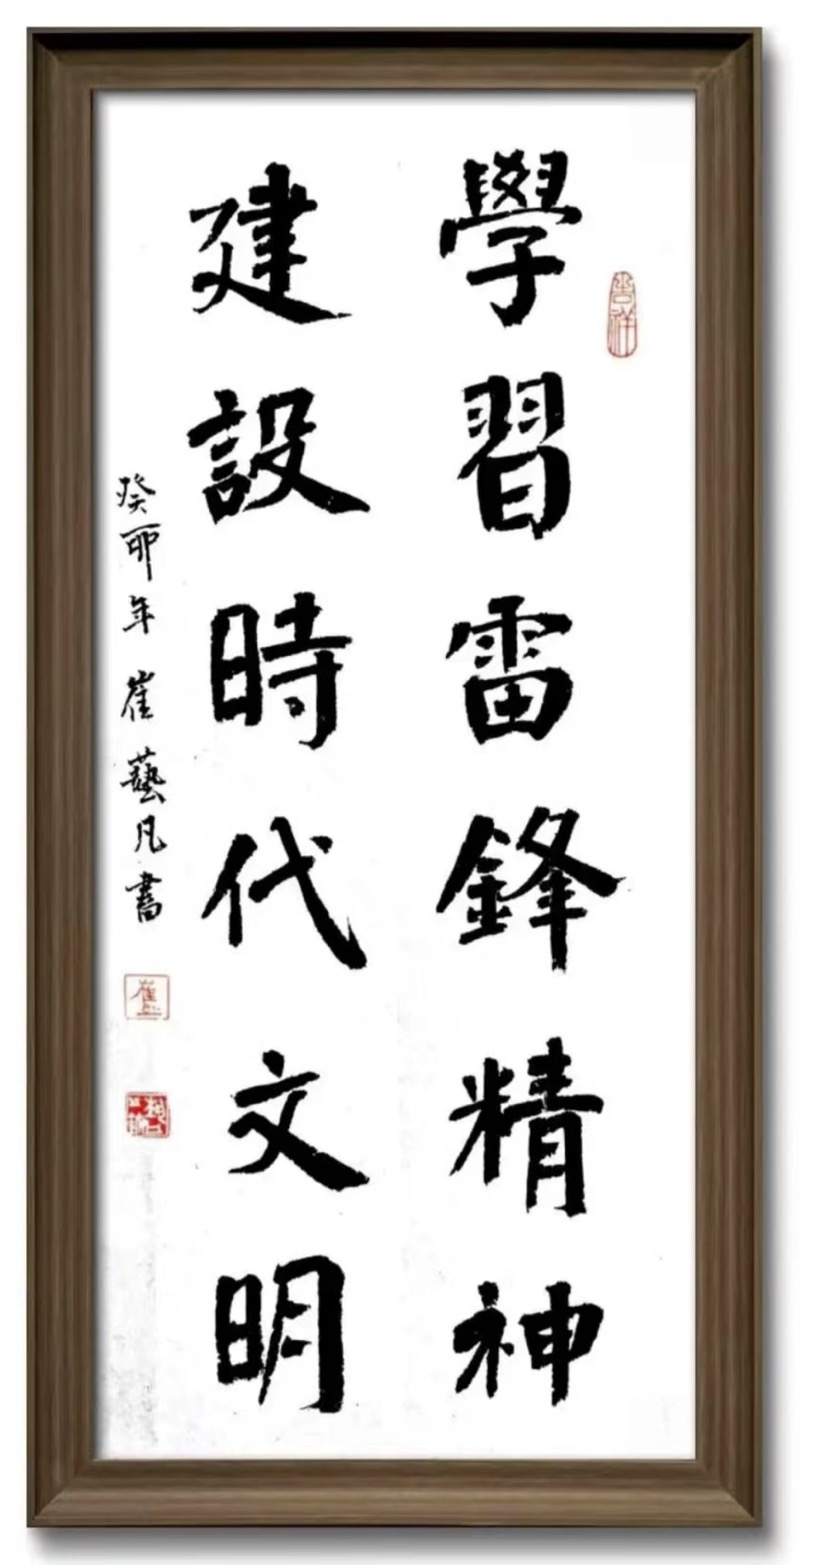 學習雷鋒精神
建設時代文明
癸卯年崔藝凡書
吉祥
崔